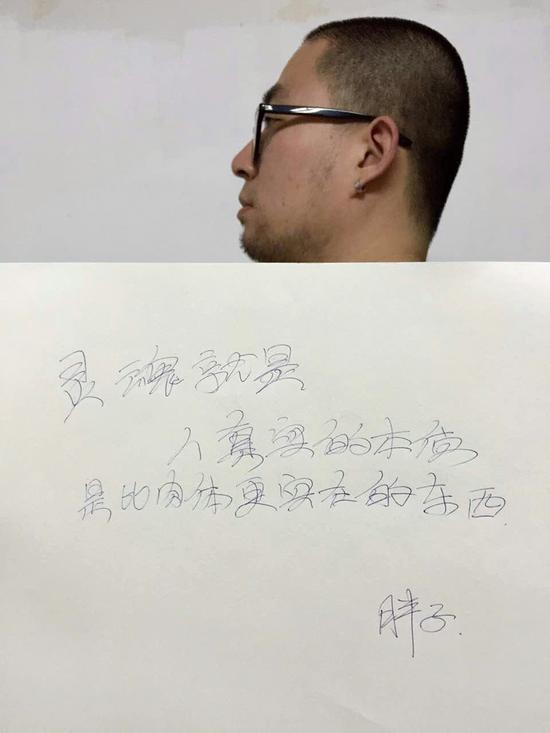 灵魂就是
人真实的本质
是比肉体更实在的东西
胖子.